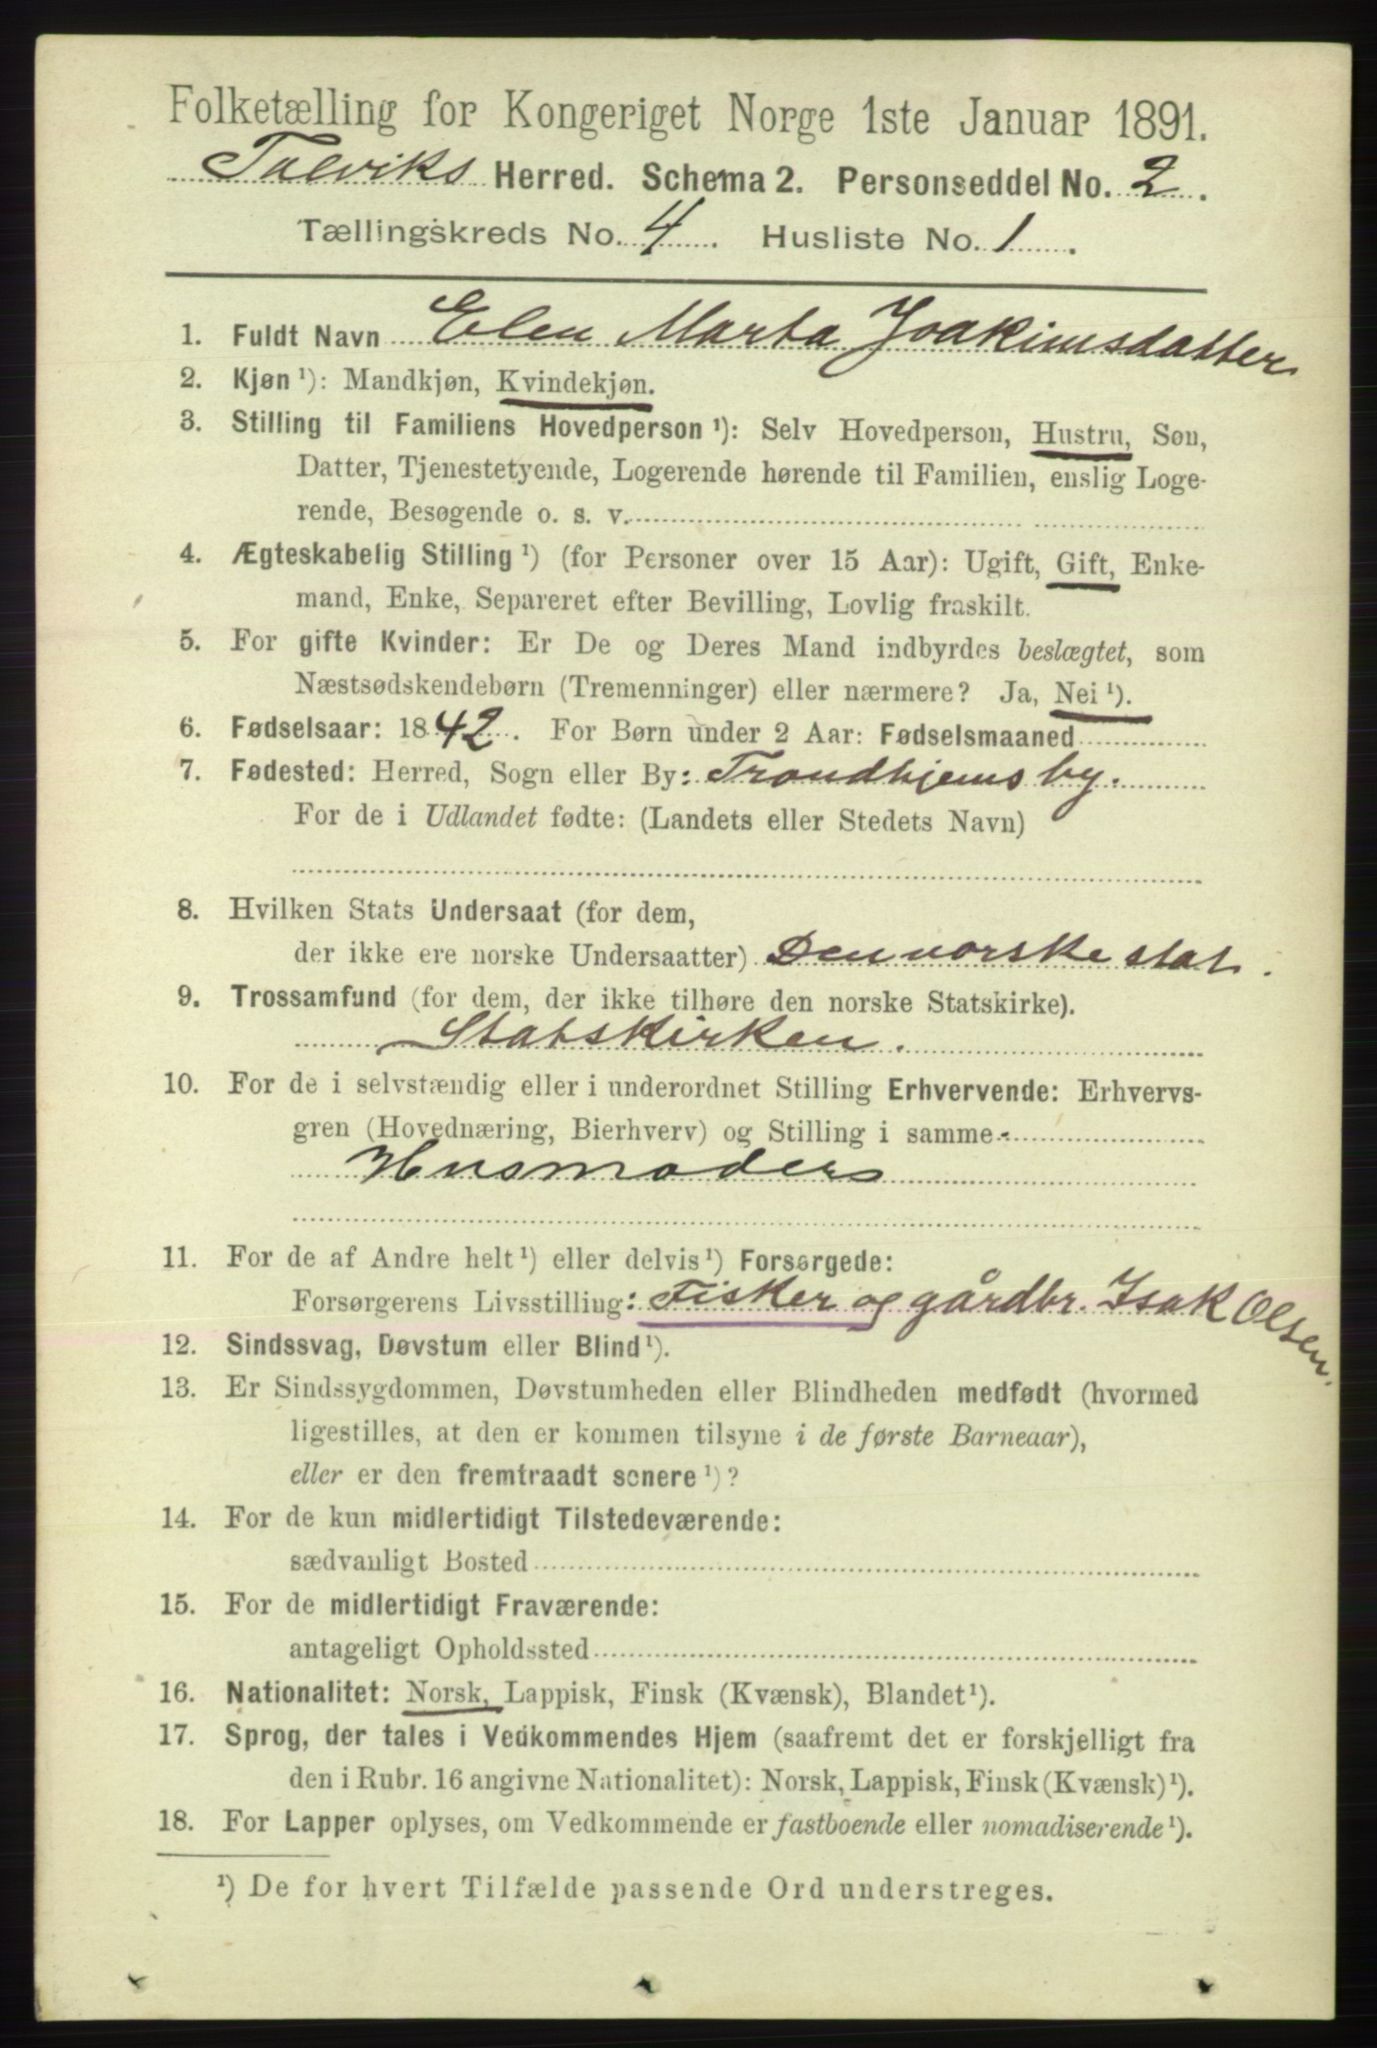 Folketælling for Kongeriget Norge 1ste Januar 1891.
Talviks Herred. Schema 2. Personseddel No. 2.
Tællingskreds No. 4. Husliste No. 1.
1. Fuldt Navn Elen Marta Joakimsdatter
2. Kjøn ¹): Mandkjøn, Kvindekjøn.
3. Stilling til Familiens Hovedperson ¹): Selv Hovedperson, Hustru, Søn,
Datter, Tjenestetyende, Logerende hørende til Familien, enslig Loge-
rende, Besøgende o. s. v.
4. Ægteskabelig Stilling ¹) (for Personer over 15 Aar): Ugift, Gift, Enke-
mand, Enke, Separeret efter Bevilling, Lovlig fraskilt.
5. For gifte Kvinder: Er De og Deres Mand indbyrdes beslægtet, som
Næstsødskendebørn (Tremenninger) eller nærmere? Ja, Nei ¹).
6. Fødselsaar: 1842. For Børn under 2 Aar: Fødselsmaaned
7. Fødested: Herred, Sogn eller By: Trondhjems by.
For de i Udlandet fødte: (Landets eller Stedets Navn)
8. Hvilken Stats Undersaat (for dem,
der ikke ere norske Undersaatter) Den norske stat.
9. Trossamfund (for dem, der ikke tilhøre den norske Statskirke).
Statskirken.
10. For de i selvstændig eller i underordnet Stilling Erhvervende: Erhvervs-
gren (Hovednæring, Bierhverv) og Stilling i samme
Husmoders
11. For de af Andre helt ¹) eller delvis ¹) Forsørgede:
Forsørgerens Livsstilling: Fisker og gårdbr. Isak Olsen.
12. Sindssvag, Døvstum eller Blind ¹).
13. Er Sindssygdommen, Døvstumheden eller Blindheden medfødt (hvormed
ligestilles, at den er kommen tilsyne i de første Barneaar),
eller er den fremtraadt senere ¹)?
14. For de kun midlertidigt Tilstedeværende:
sædvanligt Bosted
15. For de midlertidigt Fraværende:
antageligt Opholdssted
16. Nationalitet: Norsk, Lappisk, Finsk (Kvænsk), Blandet ¹).
17. Sprog, der tales i Vedkommendes Hjem (saafremt det er forskjelligt fra
den i Rubr. 16 angivne Nationalitet): Norsk, Lappisk, Finsk (Kvænsk) ¹).
18. For Lapper oplyses, om Vedkommende er fastboende eller nomadiserende ¹).
¹) De for hvert Tilfælde passende Ord understreges.